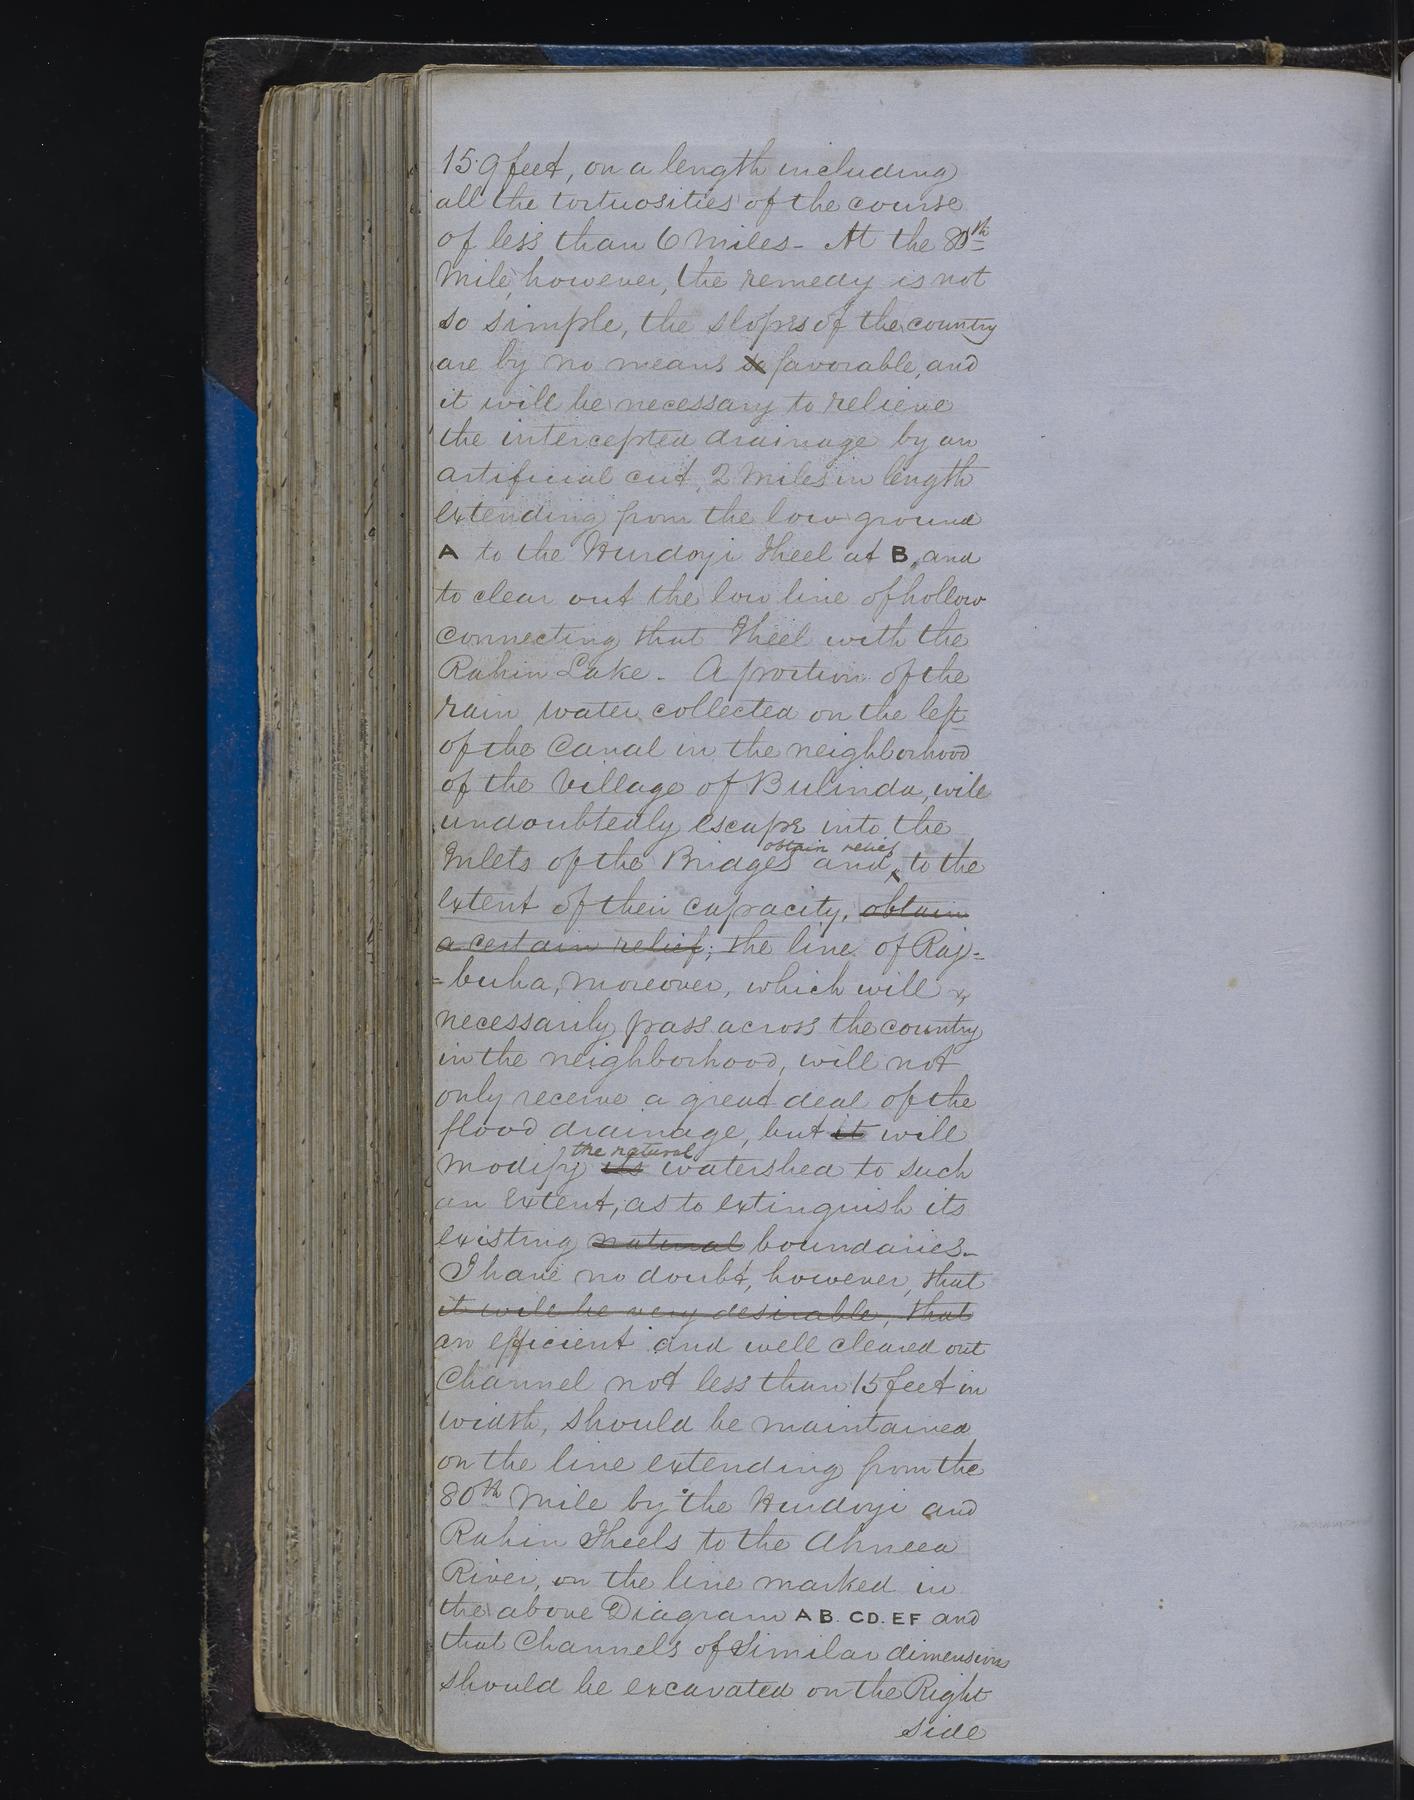 15.9 feet, on a length including
all the tortuosities of the course
of less than 6 Miles - At the 80th
Mile, however, the remedy is not
so simple, the slopes of the country
are by no means so favorable, and
it will be necessary to relieve
the intercepted drainage by an
artificial cut, 2 Miles in length
extending from the low ground
A to the Hurdoyi Jheel at B, and
to clear out the low line of hollow
connecting that Jheel with the
Rahin Lake - A portion of the
rain water collected on the left
of the Canal in the neighborhood
of the Village of Bulinda, will
undoubtedly escape into the
obtain relief
Inlets of the Bridges and, to the
extent of their capacity, obtain
a certain relief; the line of Raj=
=buha, moreover, which will
necessarily pass across the country
in the neighborhood, will not
only receive a great deal of the
flood drainage, but it will
the natural
modify its watershed to such
an extent, as to extinguish its
existing natural boundaries -
I have no doubt, however, that
it will be very desirable, that
an efficient and well cleared out
Channel not less than 15 feet in
width, should be maintained
on the line extending from the
80th Mile by the Hurdoyi and
Rahin Jheels to the Ahneea
River, on the line marked in
the above Diagram A B. C D. E F and
that Channels of Similar dimensions
should be excavated on the Right
side